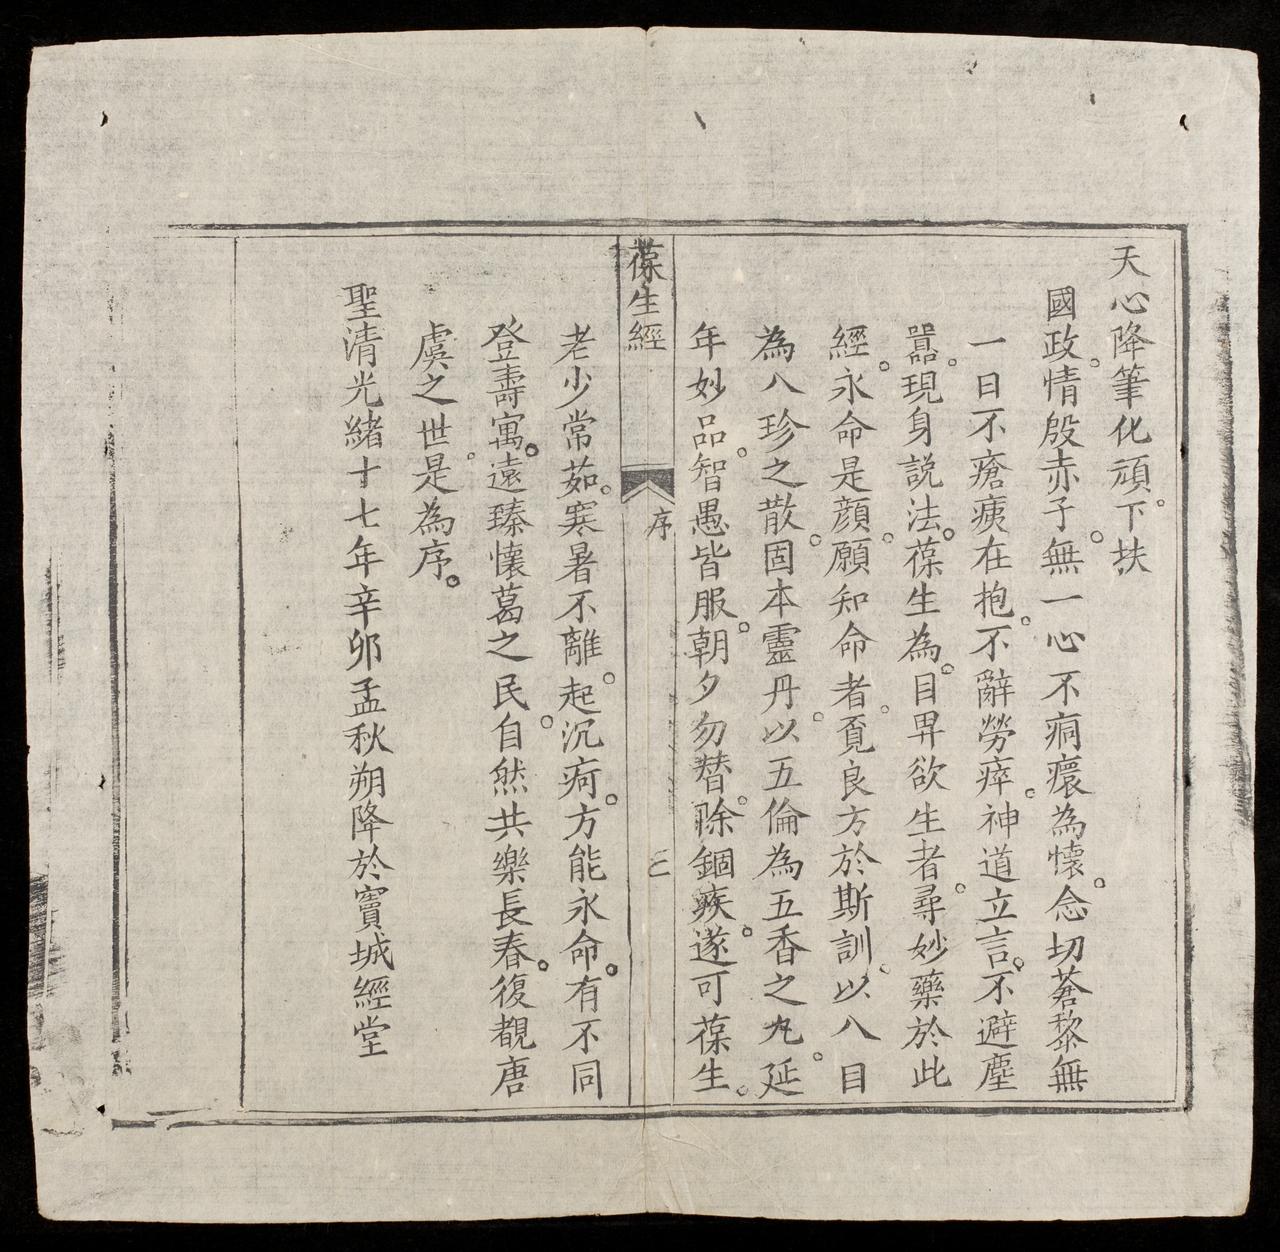 天心降筆化頑。下扶
國政。情殷赤子。無一心不痌瘝為懷。念切蒼黎無
一日不瘡痍在抱。不辭勞瘁。神道立言。不避塵
囂。現身說法。葆生為目。畀欲生者。尋妙藥於此
經。永命是顏。願知命者。覔良方於斯訓。以八目
為八珍之散。固本靈丹。以五倫為五香之丸。延
年妙品。智愚皆服。朝夕勿替。除錮疾。遂可葆生。
葆生經 序 三
老少常茹。寒暑不離。起沉疴。方能永命。有不同
登壽寓。遠臻懷葛之民。自然共樂長春。復覩唐
虞之世。是為序。
聖清光緒十七年辛卯孟秋朔降於寶城經堂